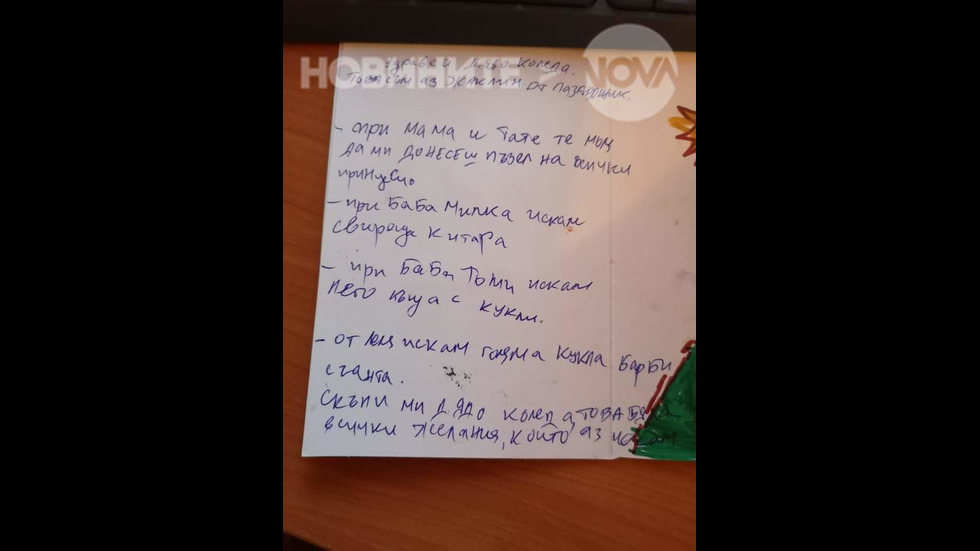 НОВИНИТЕ NOVA
Здравей Дядо Коледа.
Това съм аз от Пазарджик.
- при мама и тате те моля
да ми донесеш пъзел на всички
принцеси
- при Баба Милка искам
свиреща китара
- при Баба Томи искам
Лего къща с кукли.
- от искам голяма кукла Барби
с чанта.
Скъпи ми Дядо Колед а, това бяха
всички желания, който аз искам